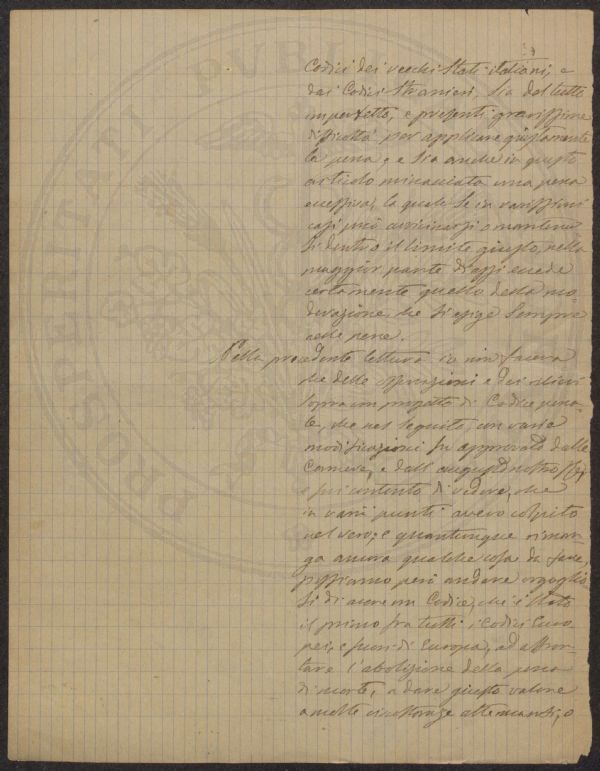 PROSPERITATI PUBL
Codici dei vecchi Stati italiani, e
dai Codici stranieri, sia del tutto
imperfetto, e presenti gravissime
difficoltà per applicare giustamente
la pena; e sia anche in questo
articolo minacciata una pena
eccessiva, la quale se in rarissimi
casi può avvicinarsi o mantener
si dentro il limite giusto, nella
maggior parte di essi eccede
certamente quello della mo-
derazione, che si esige sempre
nelle pene.
Nella precedente lettura io non faceva
che delle osservazioni e dei
sopra un progetto di Codice pena-
le, che nel seguito, con varie
modificazioni fu approvato dalle
Camere, e dall'augusto nostro Re,
e fui contento di vedere, che
in varii punti avevo colpito
nel vero; e quantunque riman-
ga ancora qualche cosa da fare,
possiamo però andare orgoglio
si di avere un Codice, che è stato
il primo fra tutti i Codici Euro
pei, e fuori di Europa, ad affron-
tare l'abolizione della pena
di morte, a dare giusto valore
a molte circostanze attenuanti, o